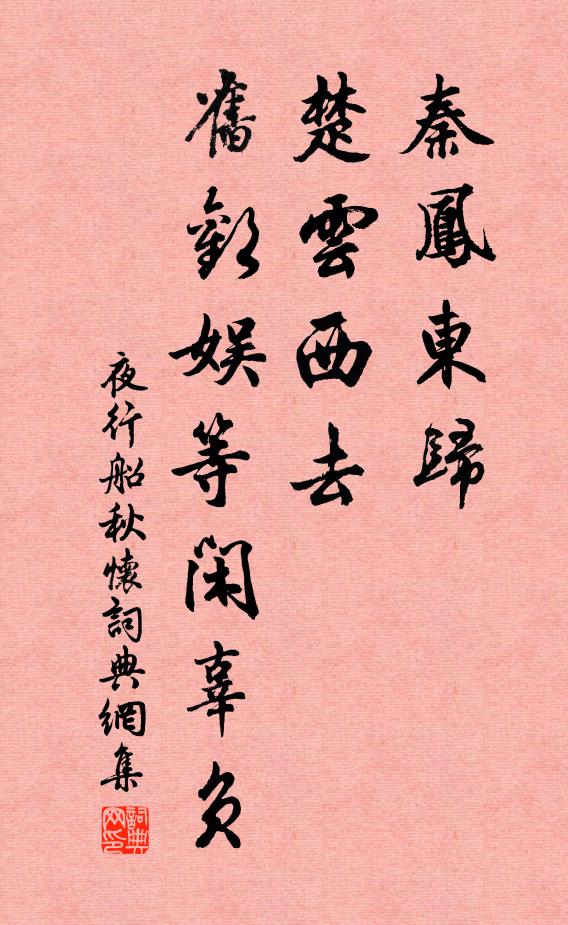 秦鳳東歸
楚雲西去
舊歡娛等閑辜負
夜行船秋懷詞典網集
詞典网印